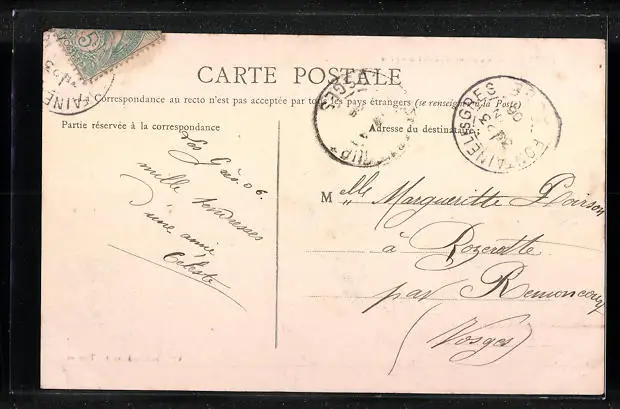 5
CARTE POSTALE
Correspondance au recto n'est pas acceptée par tous les pays étrangers (se renseigner à la Poste)
Partie réservée à la correspondance
Adresse du destinataire
FONTAINE LES GRES
06
Les Grès. 06.
mille tendresses
d'une amie
Céleste
M elle Margueritte Poirson
à Rozerotte
par Remoncourt
(Vosges)